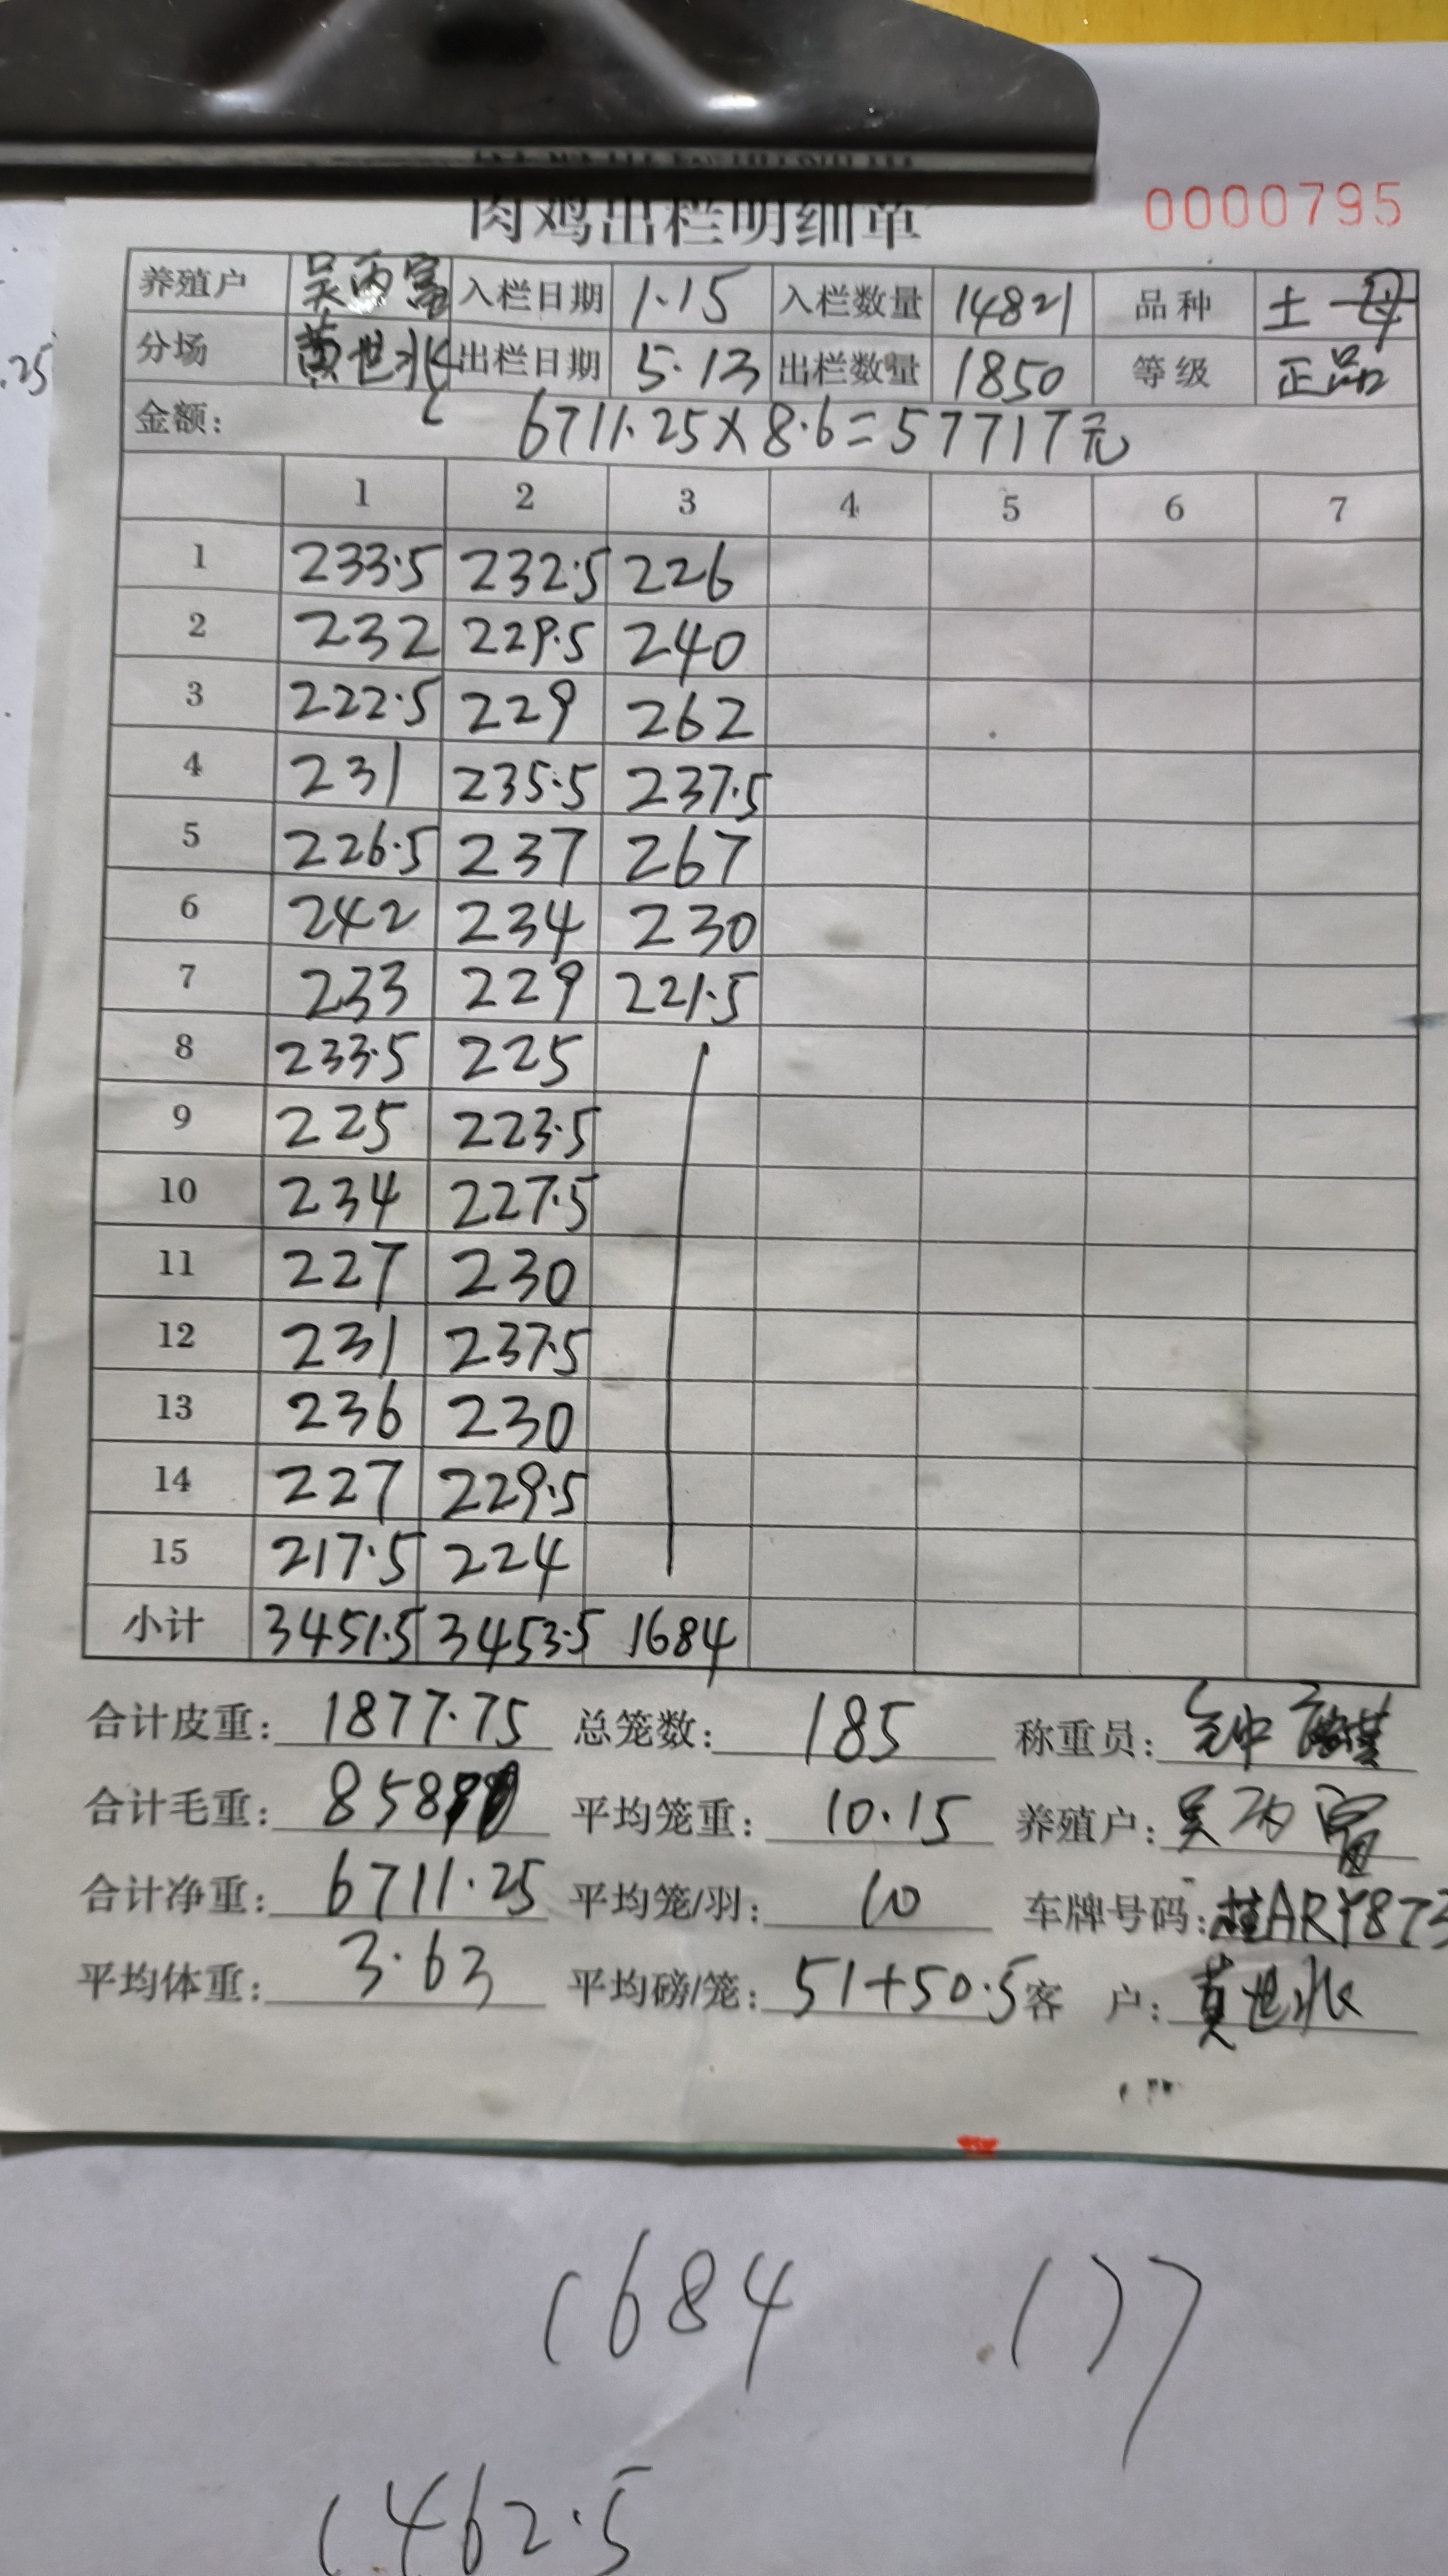 肉鸡出栏明细单
0000795
养殖户 吴丙富 入栏日期 1.15 入栏数量 14821 品种 土母
.25
分场 黄世 出栏日期 5.13 出栏数量 1850 等级 正品
金额: 6711.25×8.6=57717元
1 2 3 4 5 6 7
1 233.5 232.5 226
2 232 229.5 240
3 222.5 229 262
4 231 235.5 237.5
5 226.5 237 267
6 242 234 230
7 233 229 221.5
8 233.5 225
9 225 223.5
10 234 227.5
11 227 230
12 231 237.5
13 236 230
14 227 229.5
15 217.5 224
小计 3451.5 3453.5 1684
合计皮重: 1877.75 总笼数: 185 称重员: 钟
合计毛重: 平均笼重: 10.15 养殖户: 吴丙富
合计净重: 6711.25 平均笼/羽: 10 车牌号码: 桂ARY873
平均体重: 3.63 平均磅/笼: 51+50.5 客 户: 黄世
1684 177
1462.5